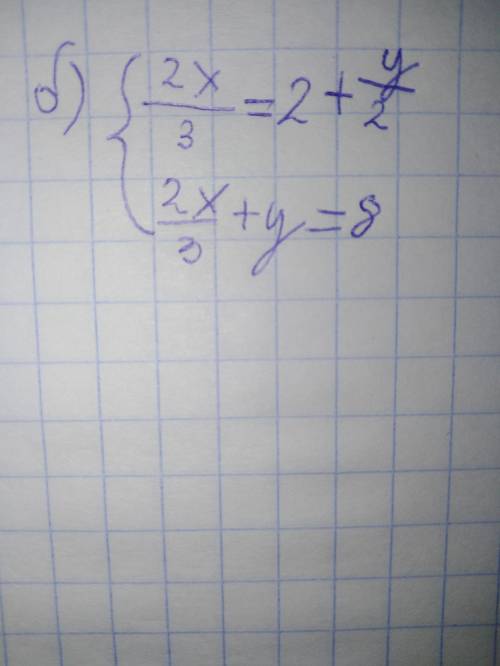 б) { 2x/3 = 2 + y/2
2x/3 + y = 8